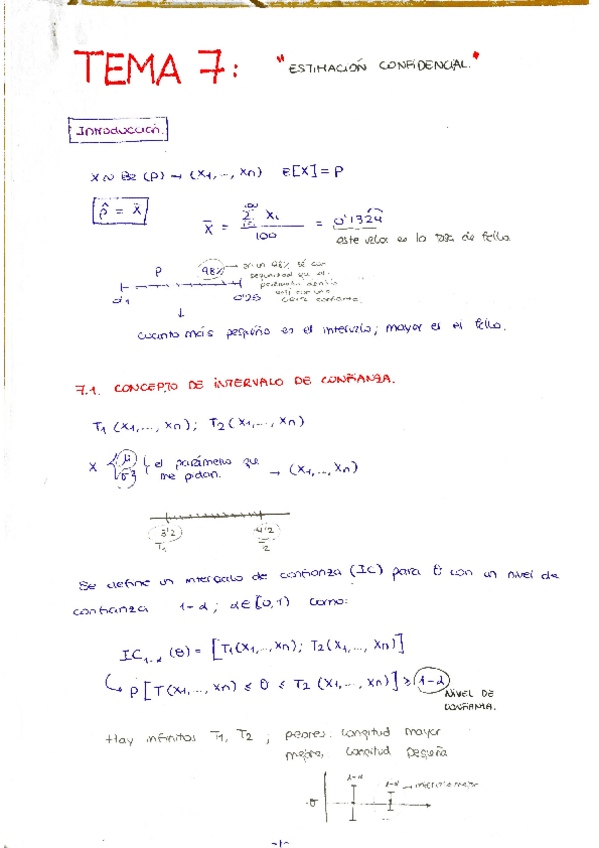 TEMA 7: "ESTIMACIÓN CONFIDENCIAL."
Introducción.
X ~ Be (p) → (X1,..., Xn) E[X] = p
p̂ = X̄
X̄ = Σ Xi / 100 = 0'1324
este valor es la tasa de fallo
p 98% → en un 98% sé con
seguridad que el
parámetro
está con una
confianza
0'1 0'25
↓
cuanto más pequeño es el intervalo; mayor es el fallo.
7.1. CONCEPTO DE INTERVALO DE CONFIANZA.
T1 (X1,..., Xn); T2 (X1,..., Xn)
X { μ σ² } el parámetro que me pidan. → (X1,..., Xn)
3'2 4'2
T1 T2
Se define un intervalo de confianza (IC) para θ con un nivel de
confianza 1-α; α∈[0,1) como:
IC1-α (θ) = [T1(X1,..., Xn); T2(X1,..., Xn)]
↳ P[T(X1,..., Xn) ≤ θ ≤ T2 (X1,..., Xn)] ≥ 1-α
NIVEL DE
CONFIANZA.
Hay infinitos T1, T2 ; peores, longitud mayor
mejores, longitud pequeña
1-α 1-α → mejor
θ
-1-